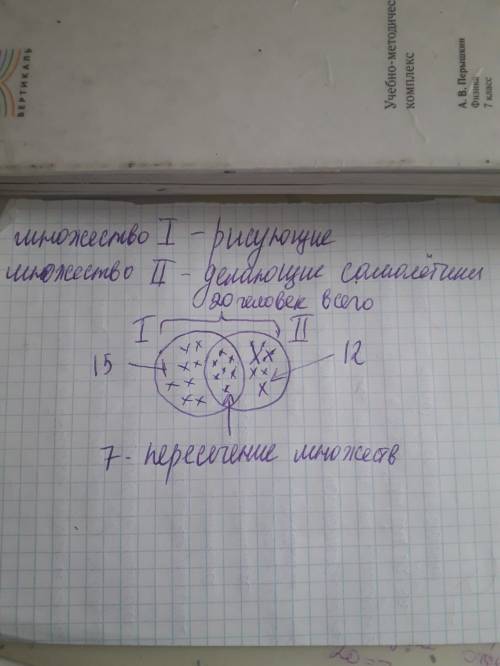 ВЕРТИКАЛЬ
Учебно-методичес
комплекс
А. В. Перышкин
Физика
7 класс
множество I - рисующие
множество II - делающие самолётики
20 человек всего
I II
15 12
7 - пересечение множеств
20